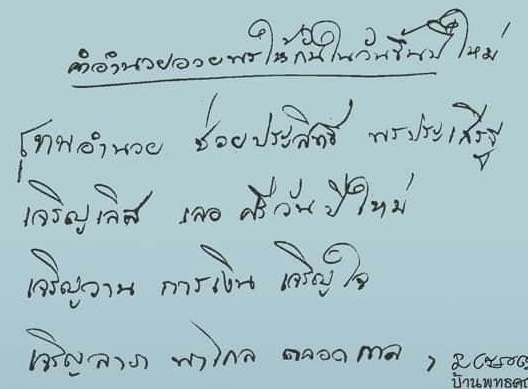 คำอำนวยอวยพรให้กันในวันขึ้นปีใหม่
เทพอำนวย ช่วยประสิทธิ์ พรประเสริฐ
เจริญเลิศ เลอ ศรีวันปีใหม่
เจริญงาน การเงิน เจริญใจ
เจริญลาภา พาไกล ตลอดกาล
บ้านพุทธ